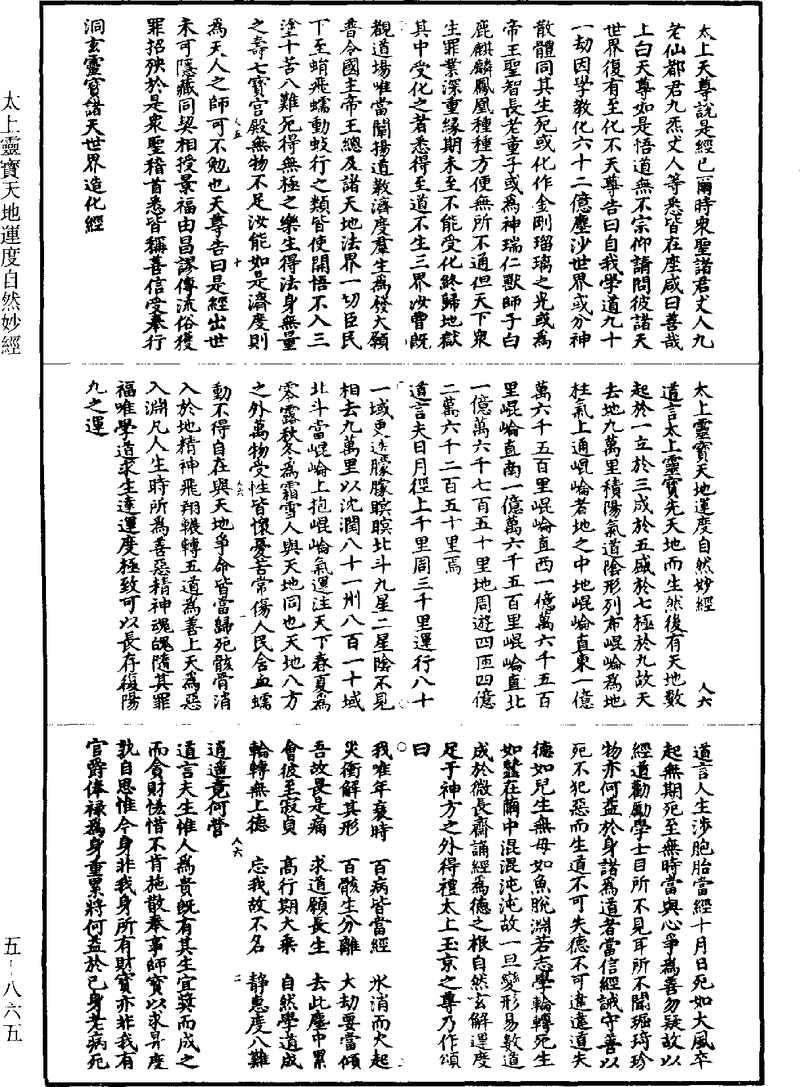 太上天尊說是經已爾時衆聖諸君丈人九
老仙都君九炁丈人等悉皆在座咸曰善哉
上白天尊如是悟道無不宗仰請問彼諸天
世界復有至化不天尊告曰自我學道九十
一劫因學教化六十二億塵沙世界或分神
散體同其生死或化作金剛瑠璃之光或為
帝王聖智長老童子或為神瑞仁獸師子白
鹿麒麟鳳凰種種方便無所不通但天下衆
生罪業深重緣期未至不能受化終歸地獄
其中受化之者悉得至道不生三界汝曹旣
觀道場唯當闡揚道教濟度羣生為發大願
普令國主帝王總及諸天地法界一切臣民
下至蛸飛蠕動蚑行之類皆使開悟不入三
塗十苦八難死得無極之樂生得法身無量
之壽七寶宮殿無物不足汝能如是濟度則
為天人之師可不勉也天尊告曰是經出世
未可隱藏同契相授景福由昌謬傳流俗獲
罪招殃於是衆聖稽首悉皆稱善信受奉行
洞玄靈寶諸天世界造化經
太上靈寶天地運度自然妙經
太上靈寶天地運度自然妙經　人六
道言太上靈寶先天地而生然後有天地數
起於一立於三成於五盛於七極於九故天
去地九萬里積陽氣道陰形列布崐崘為地
柱氣上通崐崘者地之中地崐崘直東一億
萬六千五百里崐崘直西一億萬六千五百
里崐崘直南一億萬六千五百里崐崘直北
一億萬六千七百五十里地周遊四匝四億
二萬六千二百五十里焉
道言夫日月徑上千里周三千里運行八十
一域更迭朦朦瞑瞑北斗九星二星陰不見
相去九萬里以沈潤八十一州八百一十域
北斗當崐崘上抱崐崘氣運注天下春夏為
零露秋冬為霜雪人與天地同也天地八方
之外萬物受性皆懷憂苦常傷人民含血蠕
動不得自在與天地爭命皆當歸死骸骨消
入於地精神飛翔輾轉五道為善上天為惡
入淵凡人生時所為善惡精神魂魄隨其罪
福唯學道求生達運度極致可以長存復陽
九之運
道言人生涉胞胎當經十月日死如大風卒
起無期死至無時當與心爭為善勿疑故以
經道勸勵學士目所不見耳所不聞瑶琦珍
物亦何益於身諸為道者當信經誡守善以
死不犯惡而生道不可失德不可違違道失
德如兒生無母如魚脫淵若志學輪轉死生
如蠶在繭中混混沌沌故一旦變形易數道
成於微長齋誦經為德之根自然玄解運度
足于神方之外得禮太上玉京之尊乃作頌
曰
我唯年衰時　百病皆當經　氷消而火起
災衝解其形　百骸生分離　大劫要當傾
吾故畏是痛　求道願長生　去此塵中累
會彼至寂貞　高行期大乘　自然學道成
輪轉無上德　忘我故不名　靜惠度八難
逍遥竟何營
道言夫生惟人為貴旣有其生宜奬而成之
而貪財恡惜不肯施散奉事師寶以求昇度
孰自思惟今身非我身所有財寶亦非我有
官爵俸禄為身重累將何益於已身老病死
五-八六五